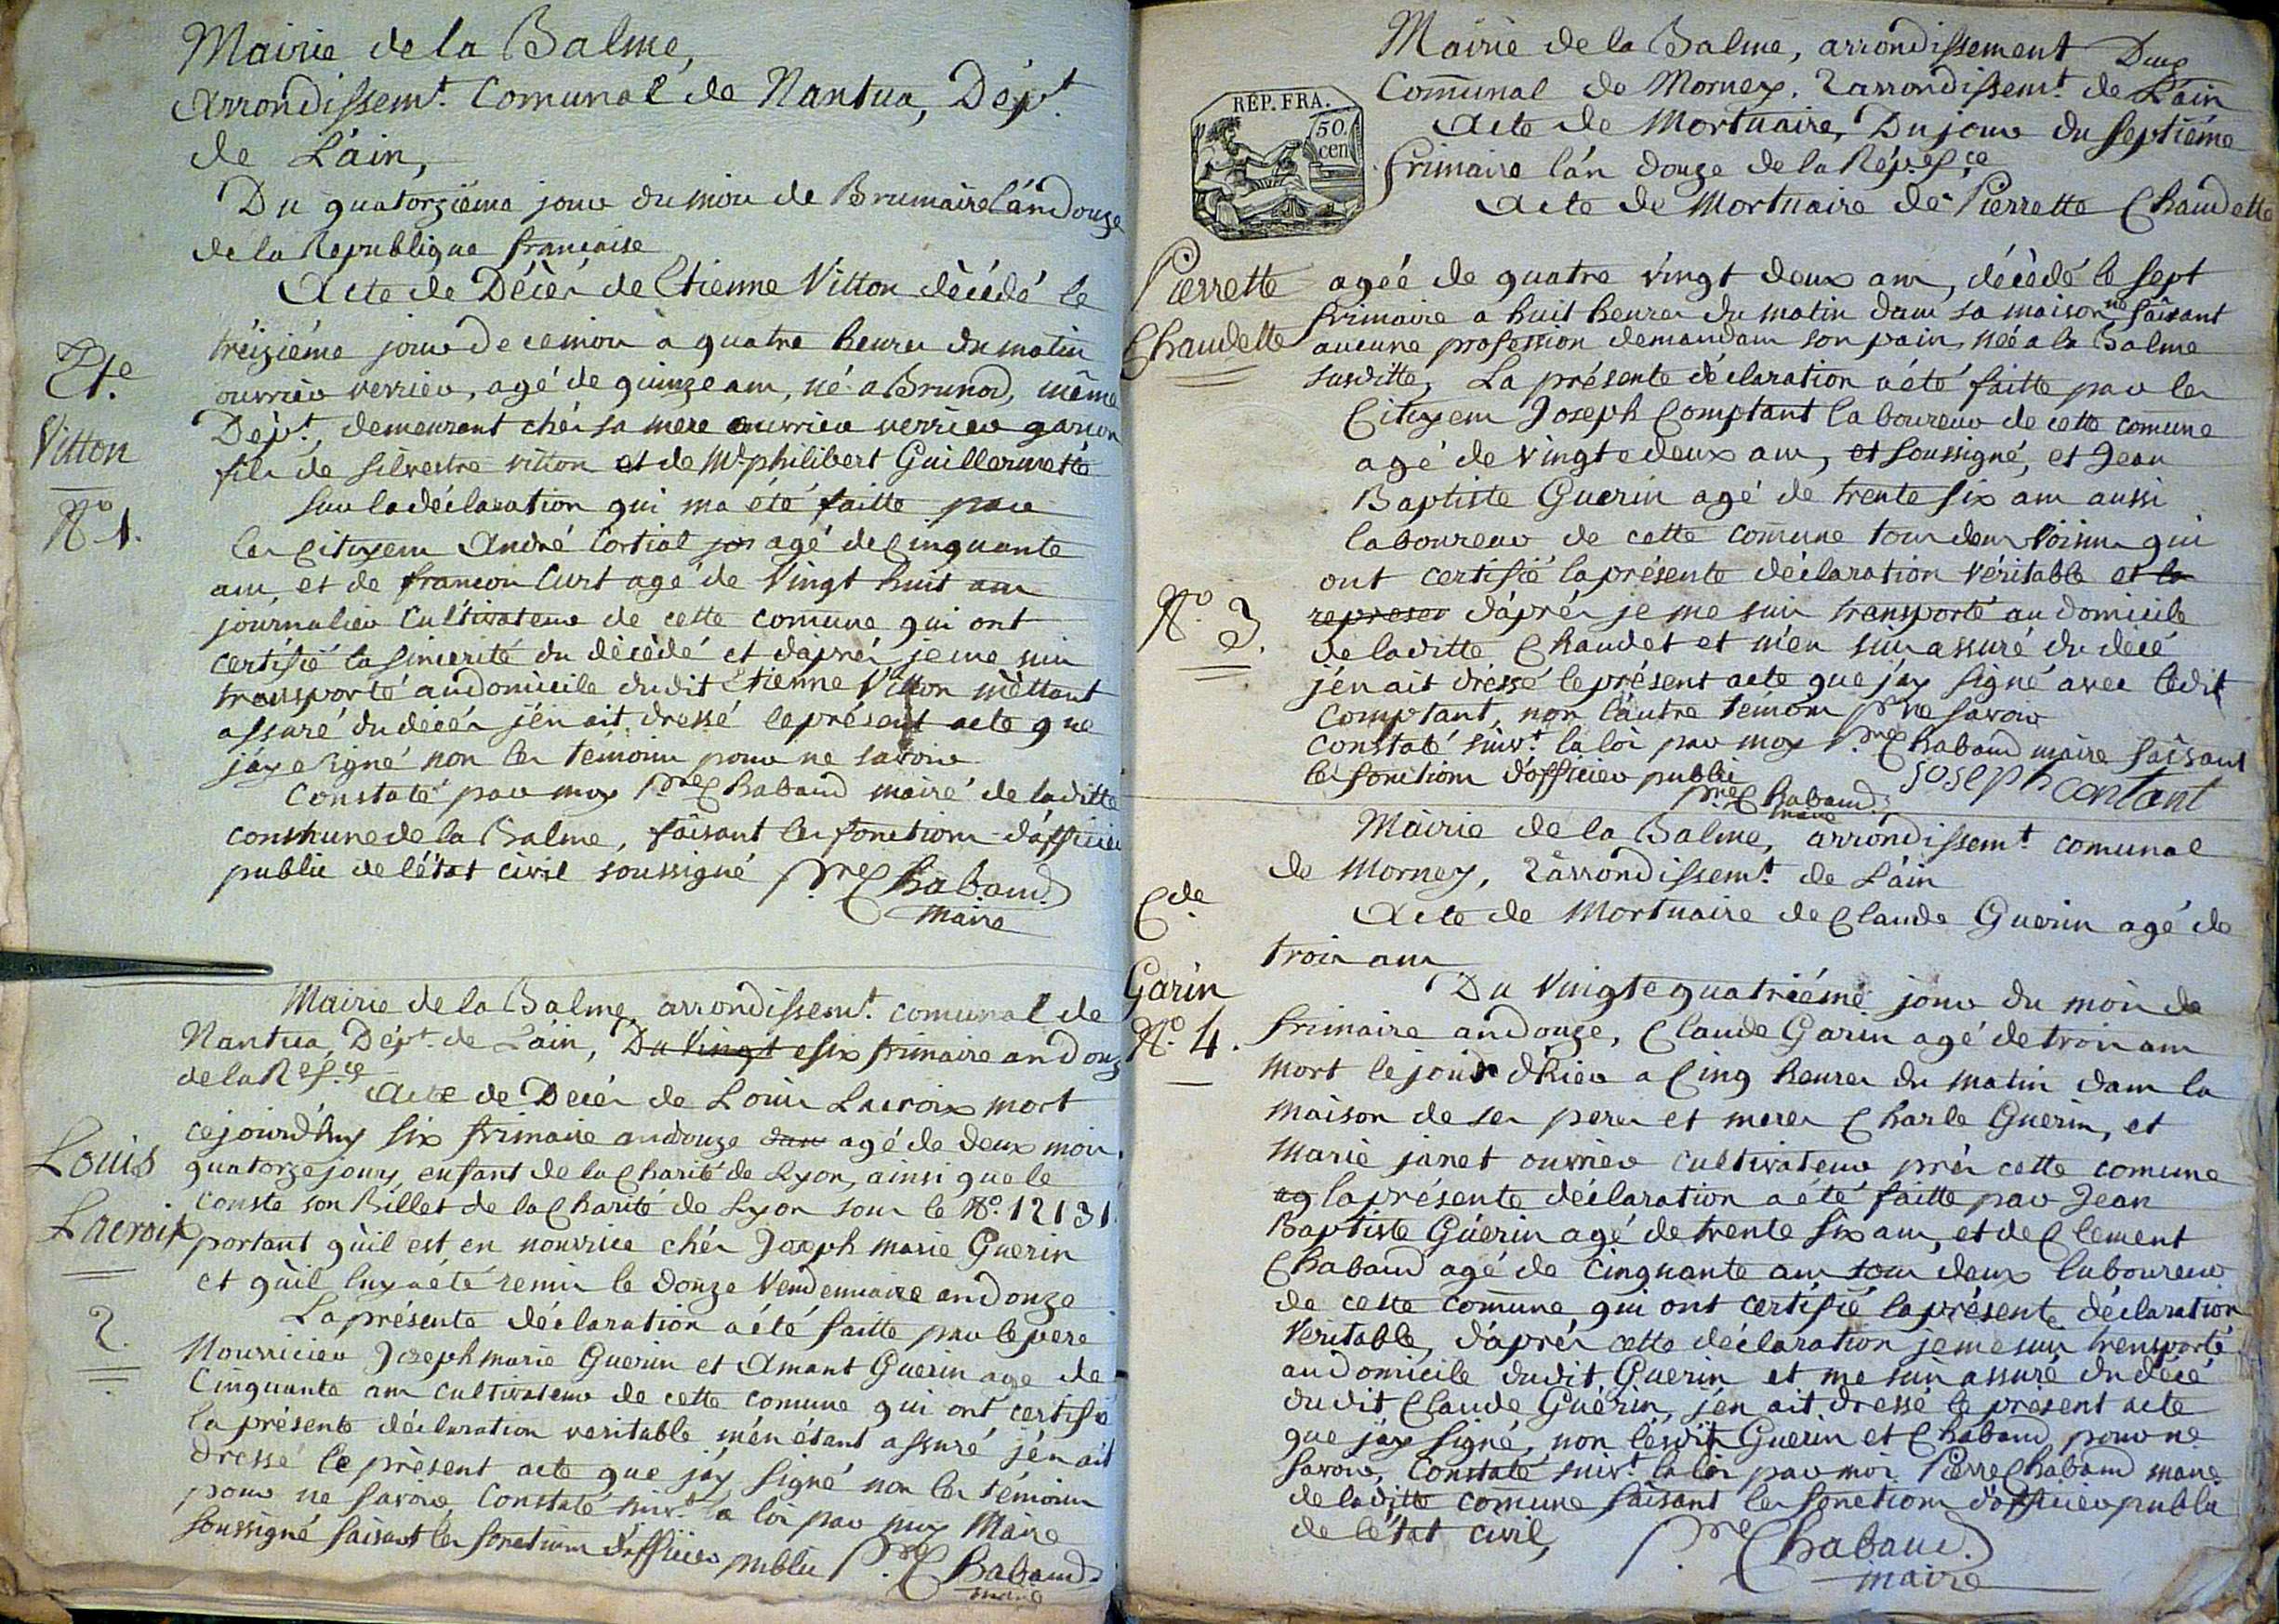 Mairie de la Balme,
arrondissemt. Comunal de Nantua, Dépt.
de L'ain,
Du quatorziéme jour du mois de Brumaire l'an douze
de la Republique française
Acte de Décés de Etienne Vitton décédé le
tréiziéme jour de ce mois a quatre heures du matin
ouvrier verrier, agé de quinze ans, né a Brunod, même
Dépt., demeurant chés sa mere ouvrier verrier garçon
fils de Silvestre vitton et de Me philibert Guillermette
Sur la déclaration qui ma été faitte par
les Citoyens André Cortial agé de Cinquante
ans, et de françois Curt agé de Vingt huit ans
journalier Cultivateurs de cette comune qui ont
certifié la sincerité du décédé et d'aprés je me suis
transporté au domicile dudit Etienne Vitton m'éttant
assuré du décés j'én ait dressé le présent acte que
j'áy signé non les témoins pour ne savoir
Constaté par moy Pre Chabaud maire de laditte
commune de la Balme, faisant les fonctions d'officier
public de l'état civil soussigné Pre Chabaud
maire
Ete
Vitton
No 1.
Mairie de la Balme, arrondissemt. comunal de
Nantua, Dépt. de L'ain, Du Vingt e six frimaire an douze
de la Repce
Acte de Decés de Louis Lacroix mort
cejourd'huy six frimaire an douze dans agé de deux mois
quatorze jours, enfant de la Charité de Lyon, ainsi que le
conste son Billet de la Charité de Lyon sous le No. 12131
portant qu'il est en nourrice chés Joseph marie Guerin
et qu'il luy a été remis le douze Vendemiaire an douze
La présente déclaration a été faitte par le pere
Nourricier Joseph marie Guerin et Amant Guerin age de
Cinquante ans cultivateurs de cette comune qui ont certifié
la présente déclaration veritable m'én étant assuré j'én ait
dressé le présent acte que j'áy signé non les témoins
pour ne savoir, Constaté suivt. la loi par moy Maire
soussigné faisant les fonctions d'officier public Pre Chabaud
maire
Louis
Lacroix
2.
Mairie de la Balme, arrondissement Deux
Communal de Mornay. 2 arrondissemt. de L'ain
Acte de Mortuaire, Du jour du septiéme
frimaire l'an douze de la Rép. fce
Acte de Mortuaire de Pierrette Chaudette
REP. FRA.
50
cen
Pierrette
Chaudette
No. 3.
agée de quatre vingt deux ans, décédé le sept
frimaire a huit heures du matin dans sa maison ne faisant
aucune profession demandans son pain, née a la Balme
susditte, La présente déclaration a été faitte par les
Citoyens Joseph Comptant laboureur de cette comune
agé de Vingt e deux ans, et soussigné, et Jean
Baptiste Guerin agé de trente six ans aussi
laboureur de cette comune tous deux Voisins qui
ont certifié la présente déclaration véritable et la
represen d'aprés je me suis transporté au domicile
de laditte Chaudet et m'en suis assuré du décé
j'én ait dressé le présent acte que j'áy signé avec ledit
Comptant, non l'áutre témoin pr ne savoir
Constaté suivt. la loi par moy Pre Chabaud maire faisant
les fonctions d'officier public
Pre Chabaud
maire
joseph contant
Mairie de la Balme, arrondissemt. comunal
de Mornay, 2 arrondissemt. de L'ain
Acte de Mortuaire de Claude Guerin agé de
trois ans
Cde
Garin
No. 4.
Du Vingt e quatriéme jour du mois de
frimaire an douze, Claude Garin agé de trois ans
mort le jour d'hier a Cinq heures du matin dans la
maison de ses peres et meres Charle Guerin, et
Marie janet ouvrier cultivateurs prés cette comune
ag la présente déclaration a été faitte par Jean
Baptiste Guérin agé de trente six ans, et de Clement
Chabaud agé de Cinquante ans tous deux laboureur
de cette comune qui ont certifié la présente déclaration
Veritable, d'aprés cette déclaration je me suis transporté
au domicile dudit Guerin et me suis assuré du décé
dudit Claude Guérin, j'én ait dressé le présent acte
que j'áy signé, non lésdit Guerin et Chabaud pour ne
savoir, Constaté suivt. la loi par moi Pierre Chabaud maire
de laditte comune faisant les fonctions d'officier public
de l'état civil, Pre Chabaud
maire